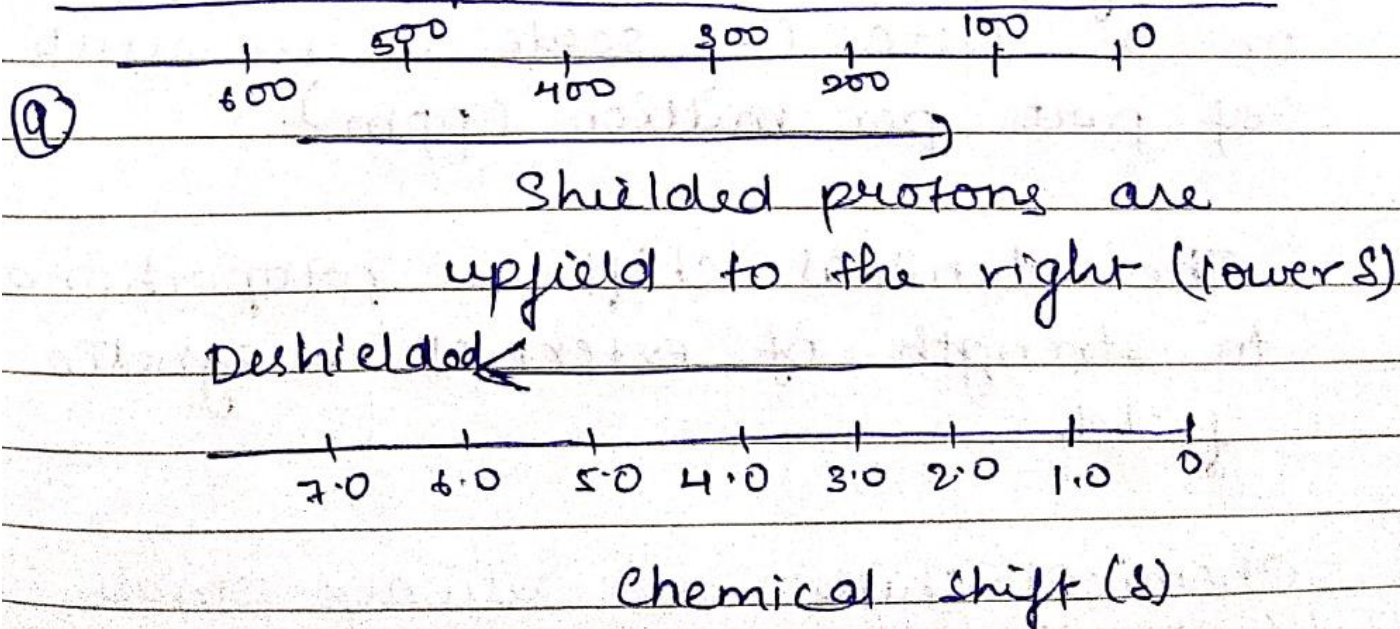 500 300 100 0
600 400 200
(a)
Shielded protons are
upfield to the right (lower δ)
Deshielded
7.0 6.0 5.0 4.0 3.0 2.0 1.0 0
Chemical shift (δ)